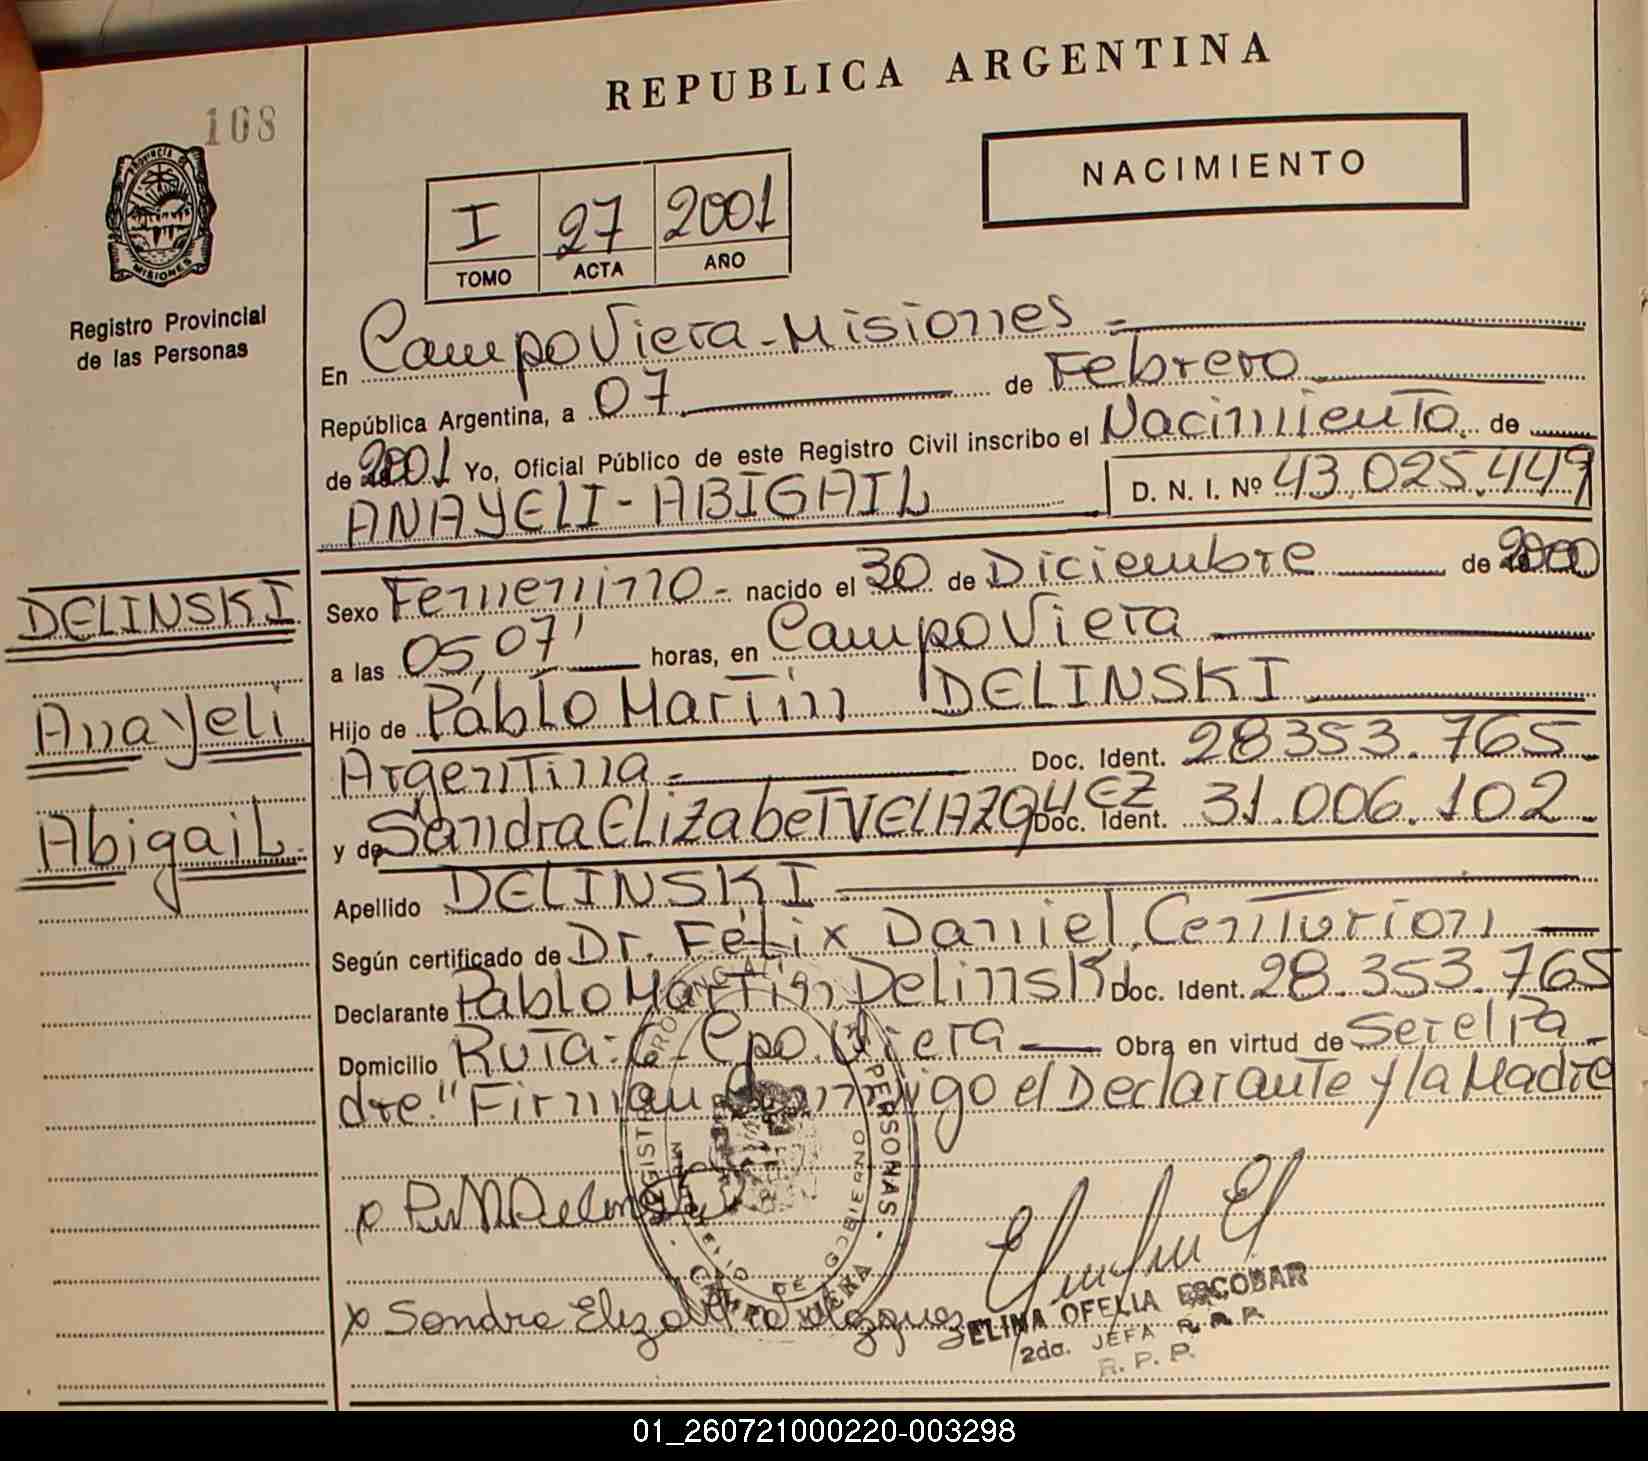 REPUBLICA ARGENTINA
168
NACIMIENTO
PROVINCIA DE
MISIONES
I 27 2001
TOMO ACTA AÑO
Registro Provincial
de las Personas
En Campo Viera - Misiones -
República Argentina, a 07 de Febrero
de 2001 Yo, Oficial Público de este Registro Civil inscribo el Nacimiento de
ANAYELI - ABIGAIL D. N. I. Nº 43.025.449
Sexo Femenino - nacido el 30 de Diciembre de 2000
a las 05,07' horas, en Campo Viera
Hijo de Pablo Martin DELINSKI
Argentina - Doc. Ident. 28353.765
y de Sandra Elizabet VELAZQUEZ Doc. Ident. 31.006.102
Apellido DELINSKI
Según certificado de Dr. Félix Daniel Centurion
Declarante Pablo Martin Delinski Doc. Ident. 28.353.765
Domicilio Ruta: 6 - Cpo. Viera Obra en virtud de Ser el Pa
dre." Firman Conmigo el Declarante y la Madre
DELINSKI
Anayeli
Abigail
x Sandra Elizabet Velazquez
PERSONAS
DE GOBIERNO
CAMPO VIERA
SELINA OFELIA ESCOBAR
2da. JEFA R. P. P.
R. P. P.
01_260721000220-003298